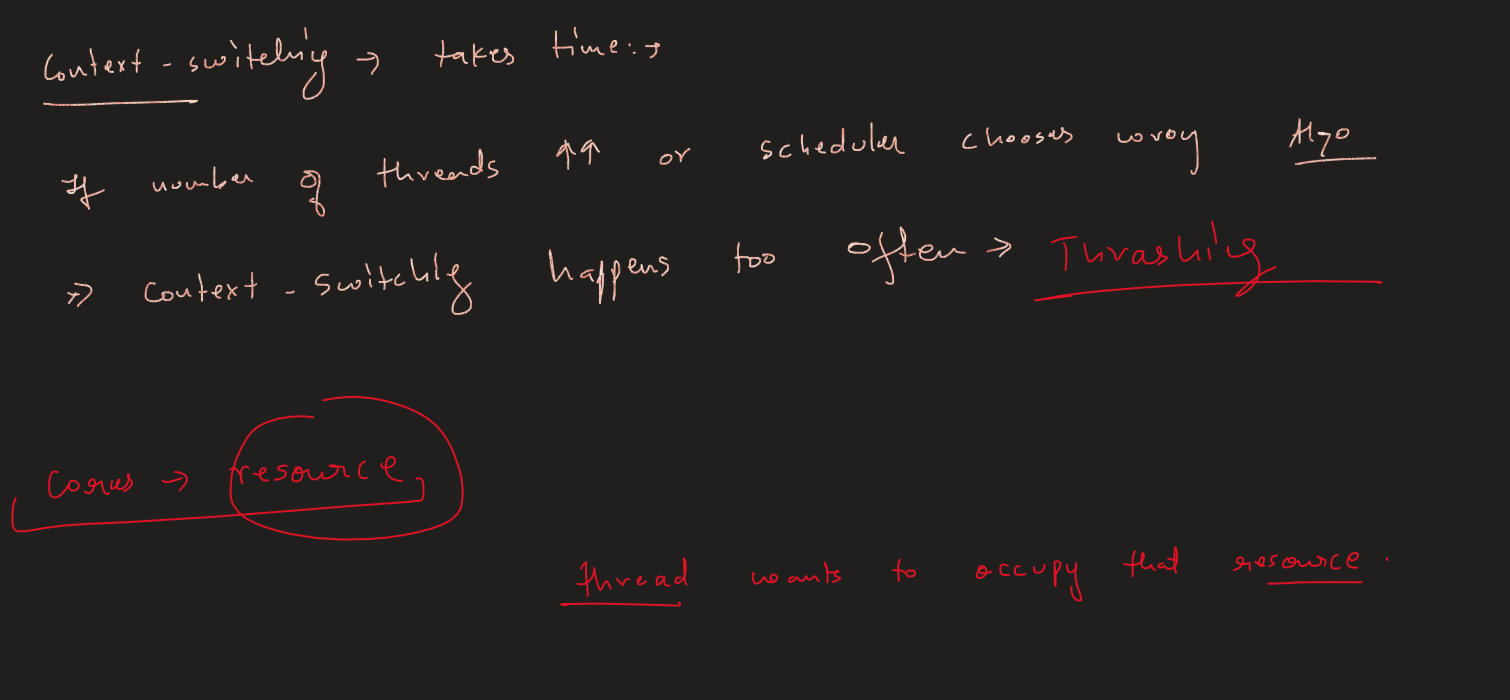 Context - switching → takes time:→
If number of threads ↑↑ or scheduler chooses wrong Algo
⇒ Context - Switching happens too often ⇒ Thrashing
Cores → resource
thread wants to occupy that resource.